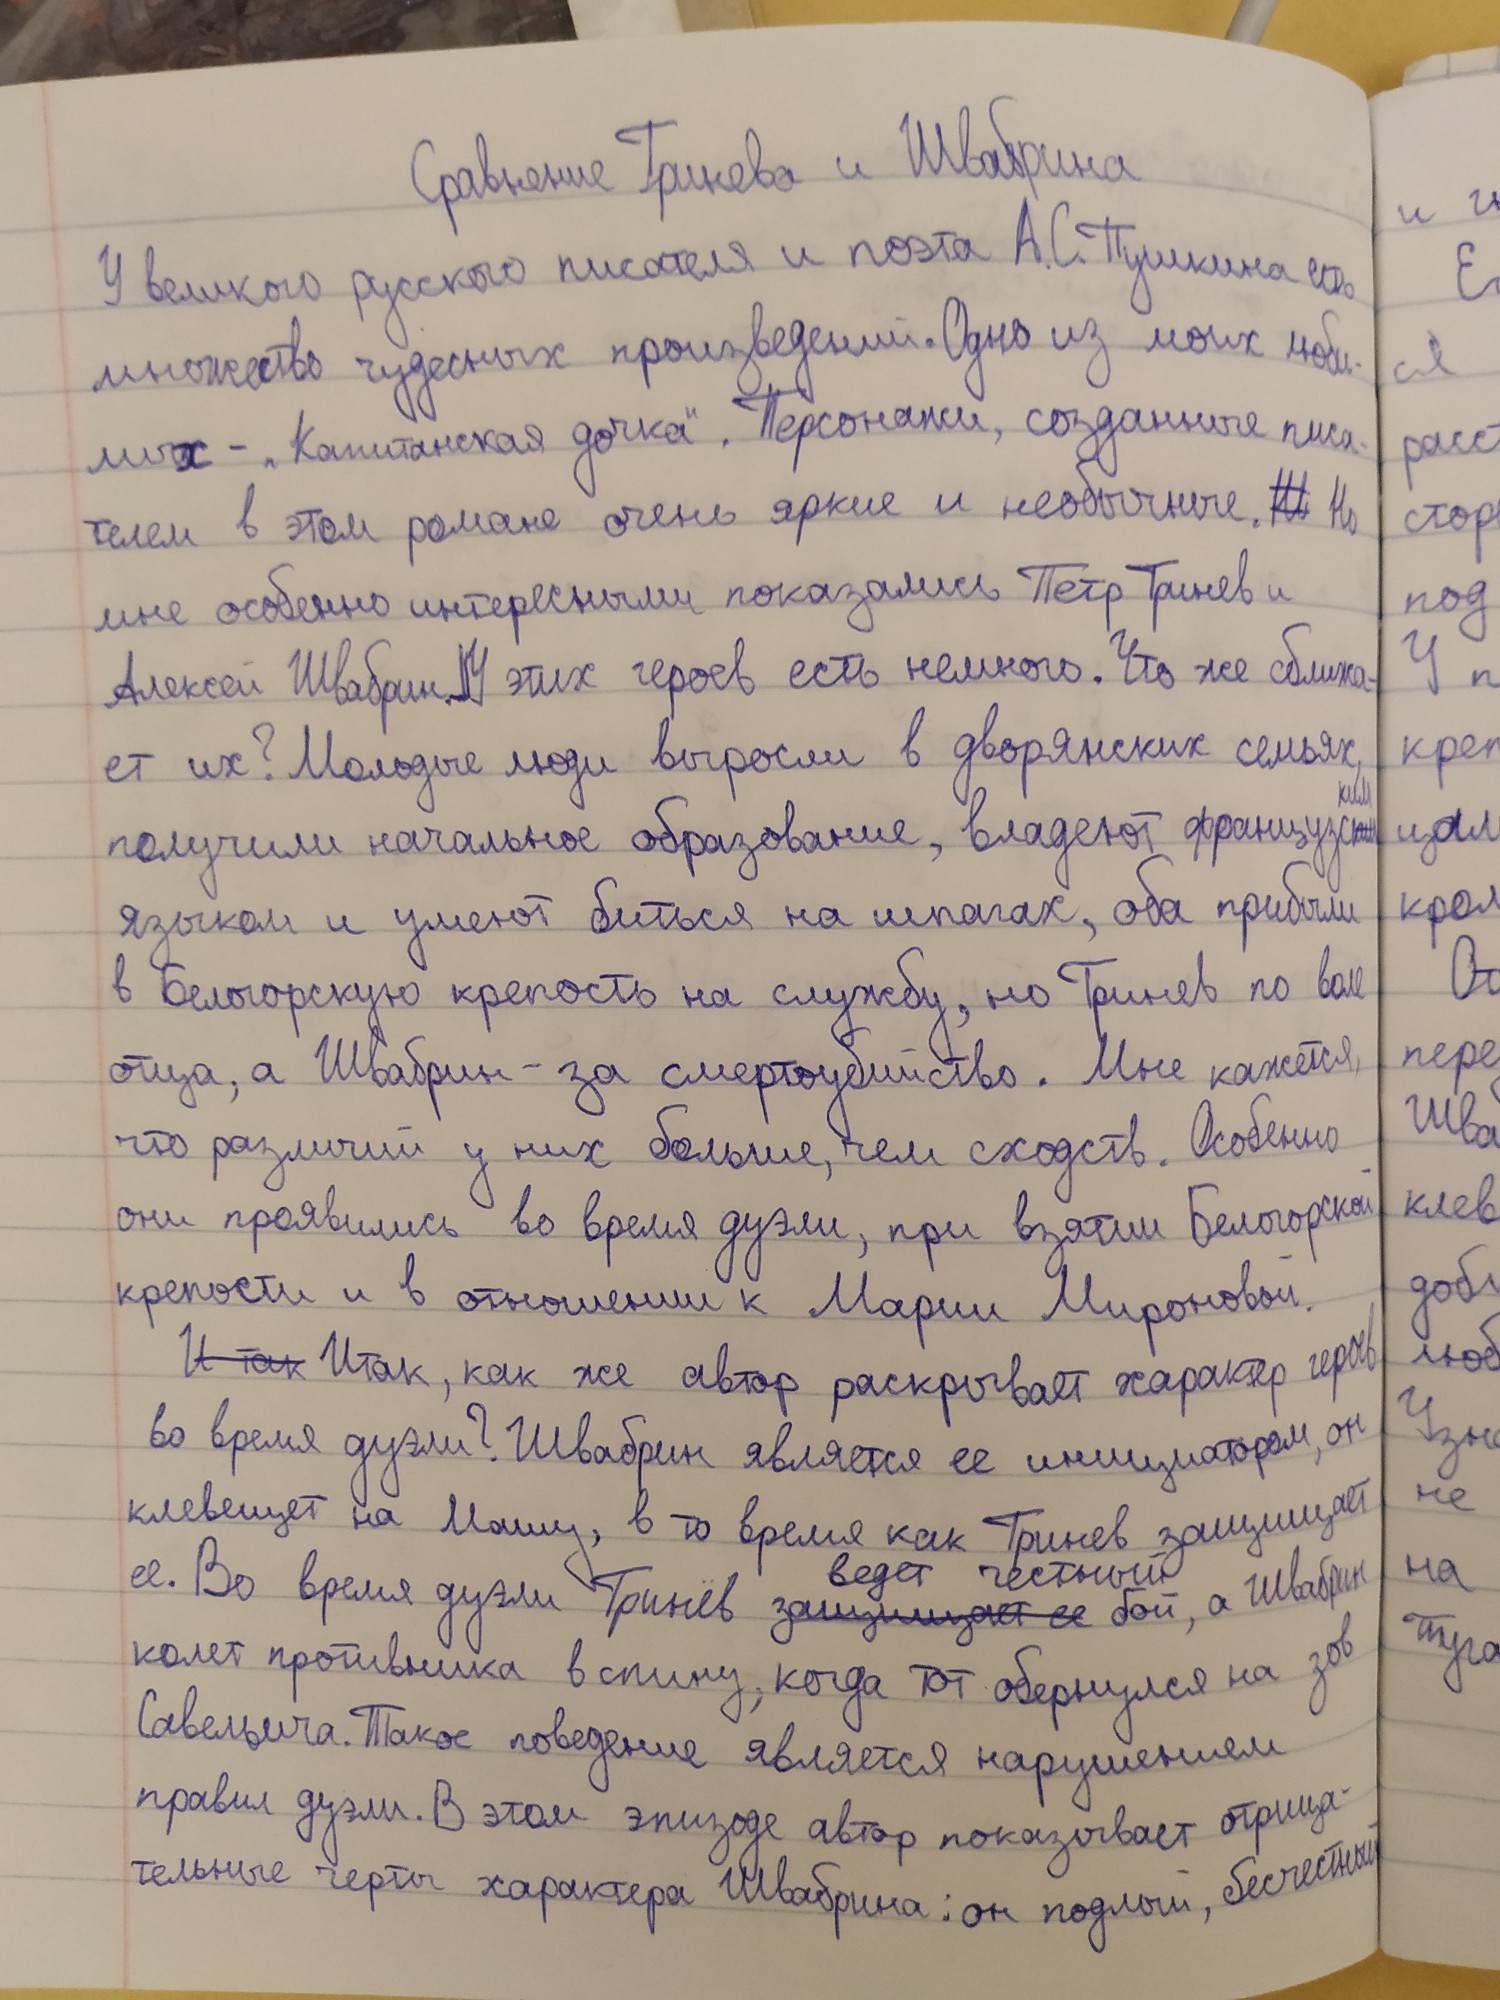 Сравнение Гринева и Швабрина
У великого русского писателя и поэта А.С.Пушкина есть
множество чудесных произведений. Одно из моих люби-
мых - „Капитанская дочка". Персонажи, созданные писа-
телем в этом романе очень яркие и необычные. Но
мне особенно интересными показались Петр Гринев и
Алексей Швабрин. У этих героев есть немного. Что же сближа-
ет их? Молодые люди выросли в дворянских семьях,
получили начальное образование, владеют французским
языком и умеют биться на шпагах, оба прибыли
в Белогорскую крепость на службу, но Гринев по воле
отца, а Швабрин - за смертоубийство. Мне кажется,
что различий у них больше, чем сходств. Особенно
они проявились во время дуэли, при взятии Белогорской
крепости и в отношении к Марии Мироновой.
И так Итак, как же автор раскрывает характер героев
во время дуэли? Швабрин является ее инициатором, он
клевещет на Машу, в то время как Гринев защищает
ее. Во время дуэли Гринёв защищает ее ведет честный бой, а Швабрин
колет противника в спину, когда тот обернулся на зов
Савельича. Такое поведение является нарушением
правил дуэли. В этом эпизоде автор показывает отрица-
тельные черты характера Швабрина: он подлый, бесчестный
и
Ег
ся
расст
стор
под
У п
креп
цам
кром
пере
Шва
клев
доби
люб
Узна
не
на
Пуга